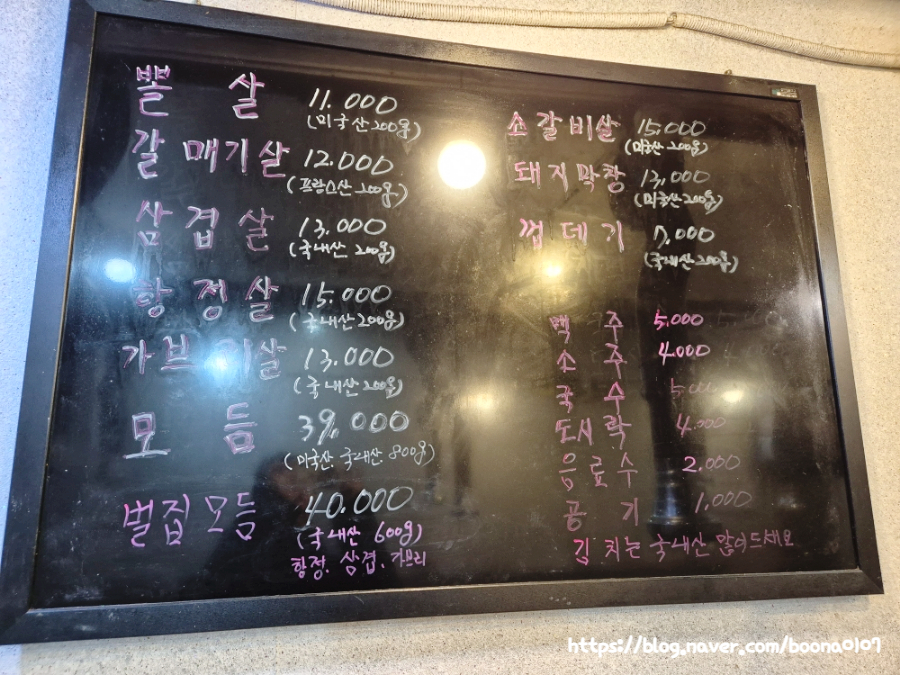 뽈살 11.000
(미국산 200g)
갈매기살 12.000
(프랑스산 200g)
삼겹살 13.000
(국내산 200g)
항정살 15.000
(국내산 200g)
가브리살 13.000
(국내산 200g)
모듬 39,000
(미국산. 국내산. 800g)
벌집모듬 40.000
(국내산 600g)
항정. 삼겹. 가브리
소갈비살 15.000
(미국산 200g)
돼지막창 13,000
(미국산 200g)
껍데기 7.000
(국내산 200g)
맥주 5.000
소주 4.000
국수 5.000
도시락 4.000
음료수 2.000
공기 1.000
김치는 국내산
https://blog.naver.com/boona0107